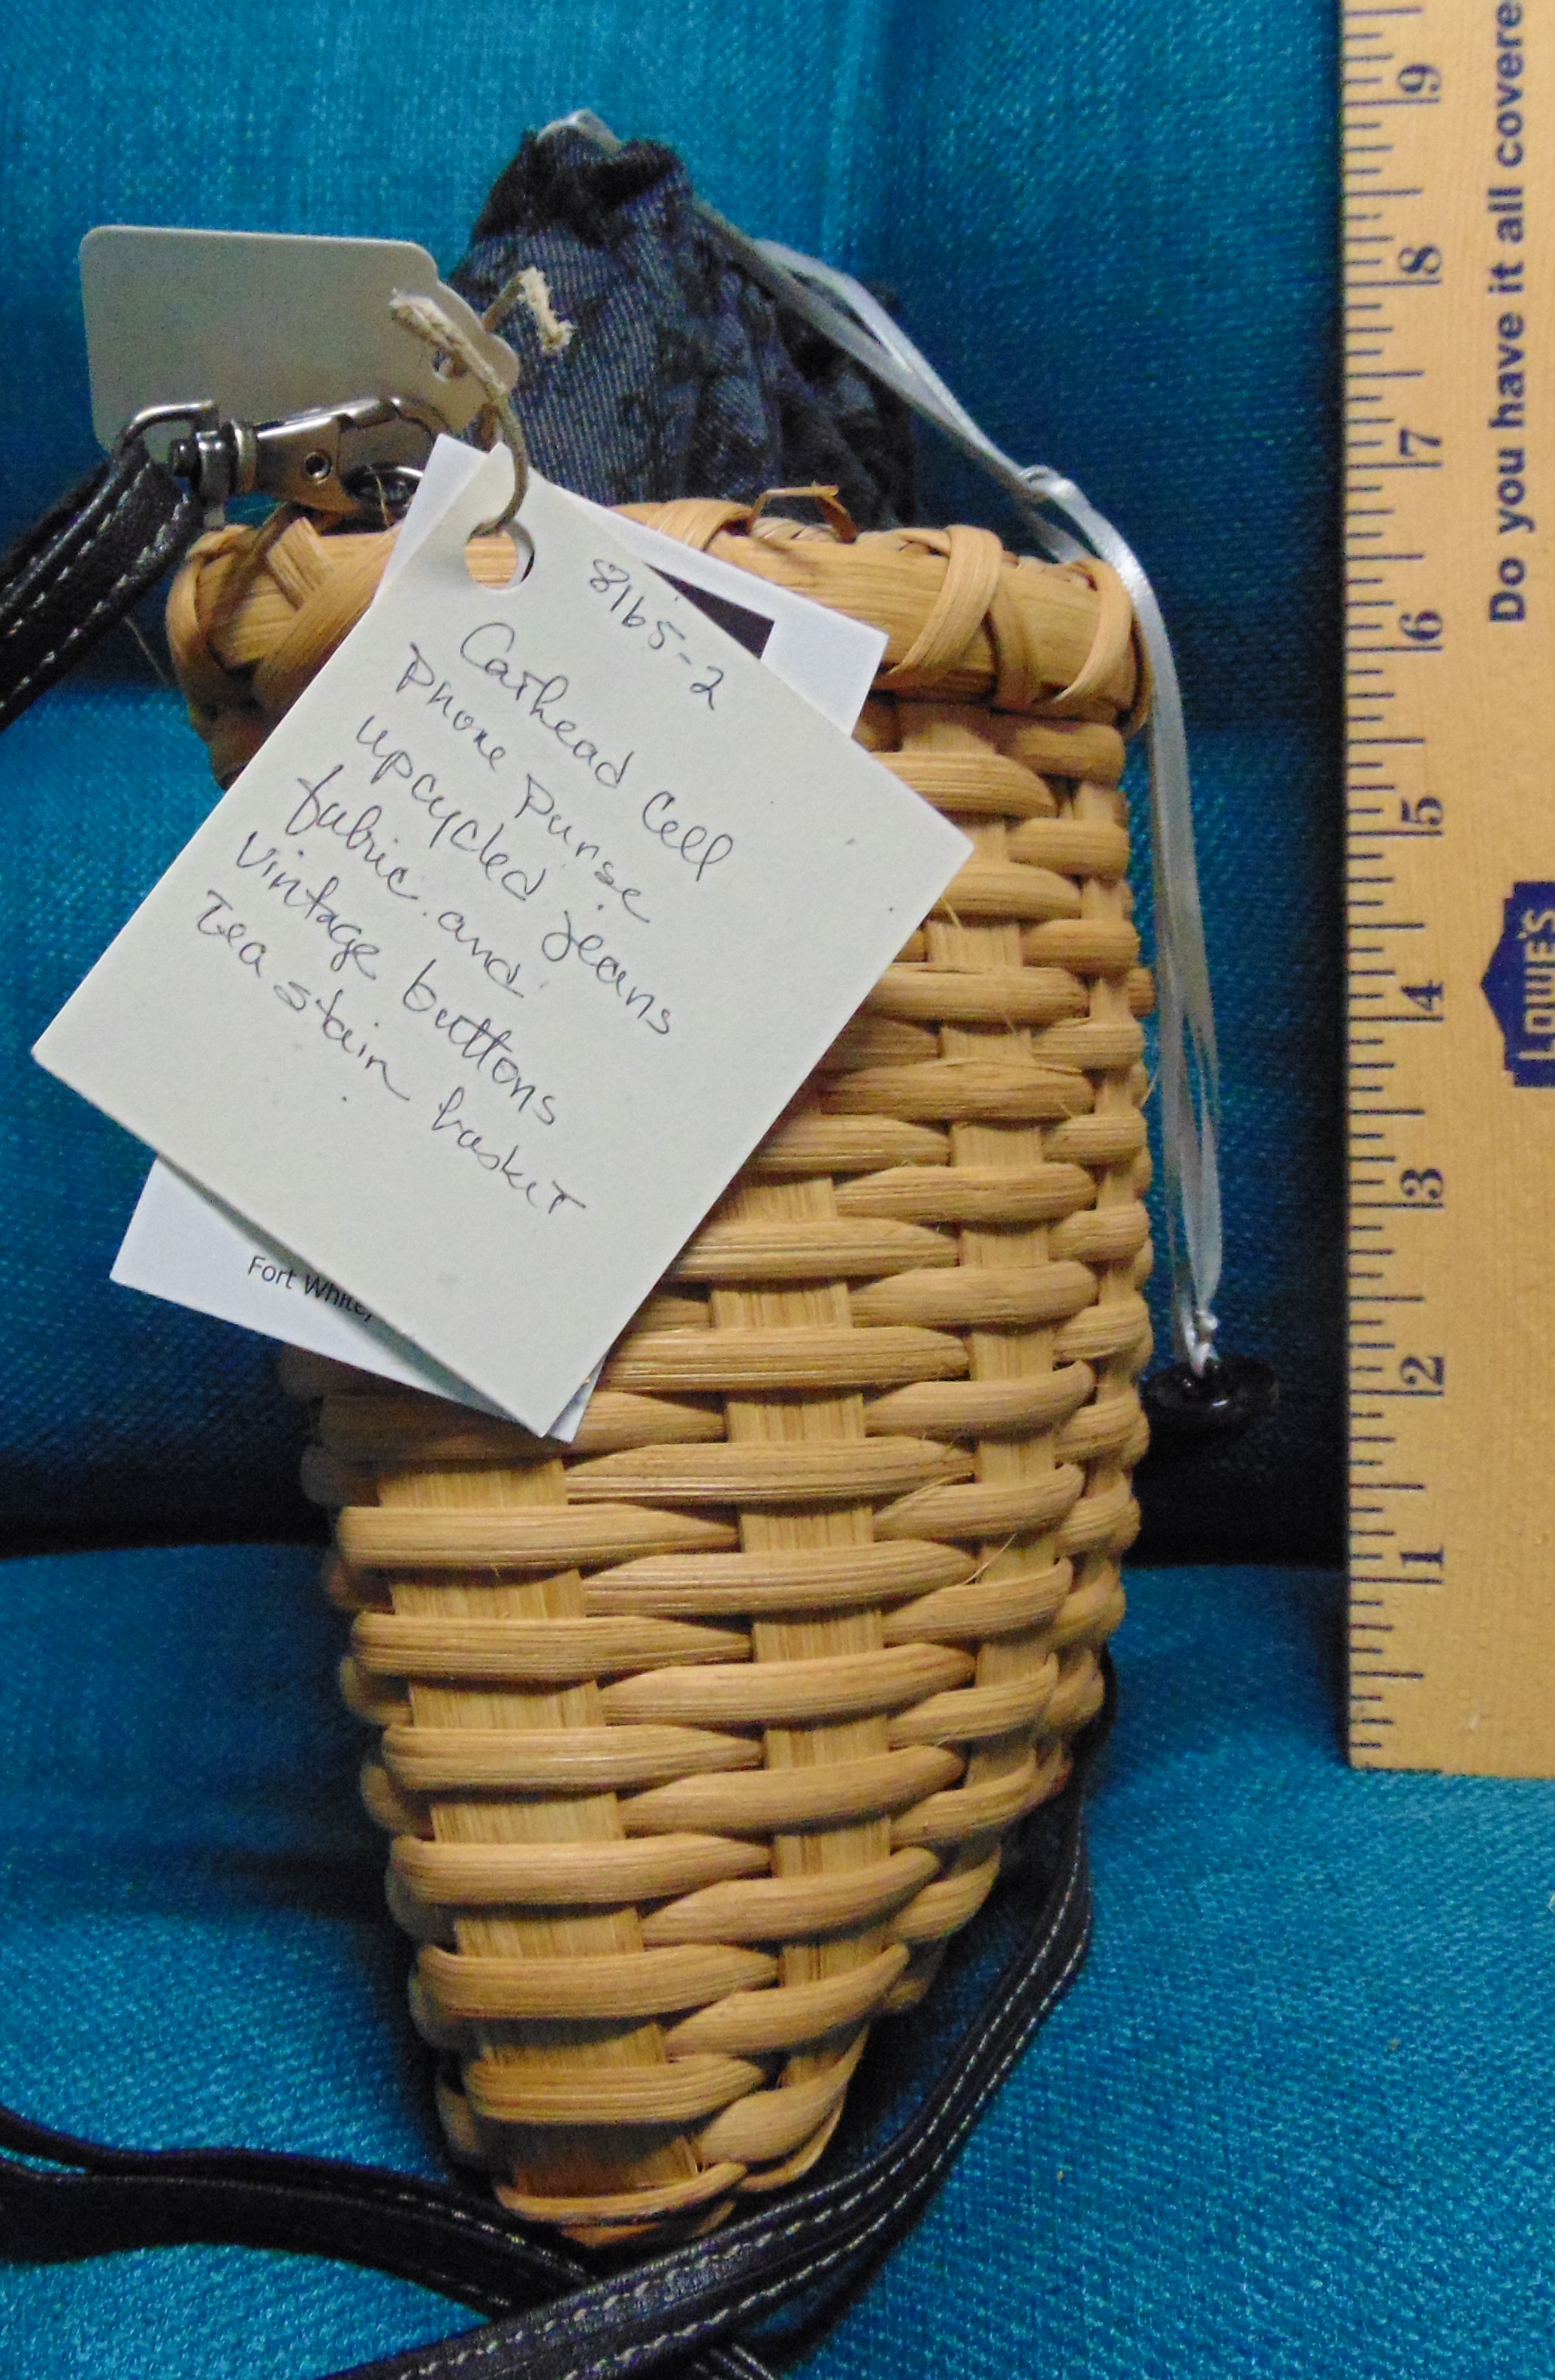 8165-2
Cathead Cell
Phone Purse
upcycled jeans
fabric and
vintage buttons
Tea stain basket
Fort White,
Do you have it all covere
LOWE'S
9
8
7
6
5
4
3
2
1